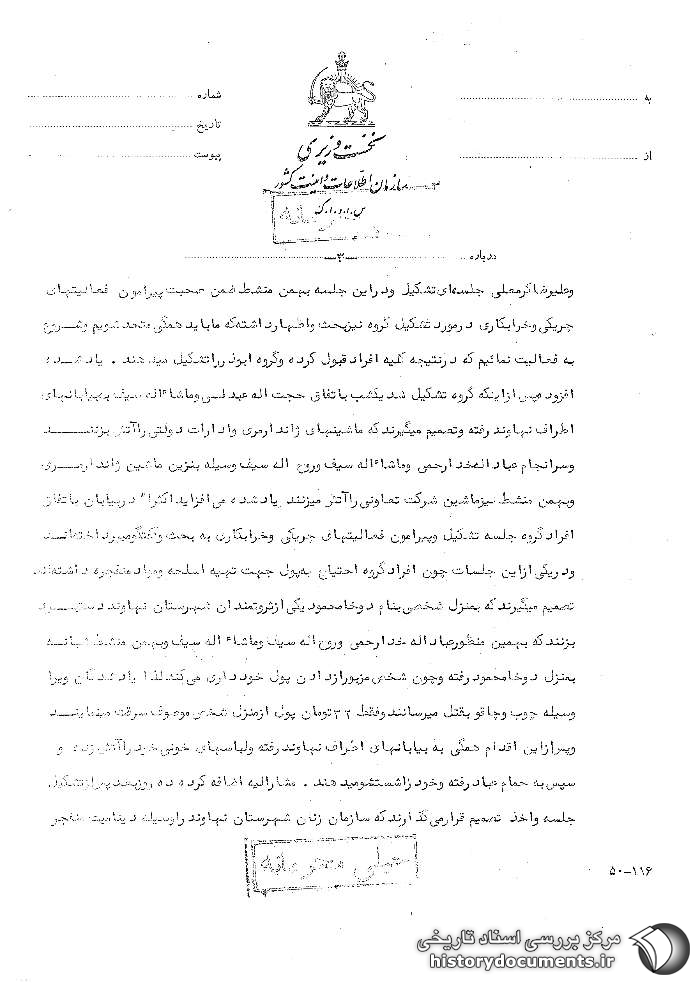 به
شماره
تاریخ
از
پیوست
نخست وزیری
سازمان اطلاعات و امنیت کشور
س.ا.و.ا.ک
درباره
-۳-
وعلیرضا کرمعلی جلسه‌ای تشکیل ودراین جلسه بهمن منشط ضمن صحبت پیرامون فعالیتهای
چریکی وخرابکاری درمورد تشکیل گروه نیزبحث واظهارداشته که ماباید همگی متحد شویم وشروع
به فعالیت نمائیم که درنتیجه کلیه افراد قبول کرده وگروه ابوذرراتشکیل میدهند . یادشده
افزود پس ازاینکه گروه تشکیل شد یکشب باتفاق حجت اله عبدلی وماشاءاله سیف به بیابانهای
اطراف نهاوند رفته وتصمیم میگیرند که ماشینهای ژاندارمری وادارات دولتی راآتش بزنند
وسرانجام عباداله خدارحمی وماشاءاله سیف وروح اله سیف وسیله بنزین ماشین ژاندارمری
وبهمن منشط نیزماشین شرکت تعاونی راآتش میزنند یادشده می افزاید اکثرا" دربیابان باتفاق
افراد گروه جلسه تشکیل وپیرامون فعالیتهای چریکی وخرابکاری به بحث وگفتگومیپرداخته‌اند
ودریکی ازاین جلسات چون افراد گروه احتیاج به پول جهت تهیه اسلحه ومواد منفجره داشته‌اند
تصمیم میگیرند که بمنزل شخصی بنام دوخامحمود یکی ازثروتمندان شهرستان نهاوند دستبرد
بزنند که بهمین منظورعباداله خدارحمی وروح اله سیف وماشاءاله سیف وبهمن منشط شبانه
بمنزل دوخامحمود رفته وچون شخص مزبورازدادن پول خودداری می‌کند لذا یادشدگان ویرا
وسیله چوب وچاقو بقتل میرسانند وفقط ۲۲ تومان پول ازمنزل شخص موصوف سرقت مینمایند
وپس ازاین اقدام همگی به بیابانهای اطراف نهاوند رفته ولباسهای خونی خود راآتش زده و
سپس به حمام عباد رفته وخود راشستشومیدهند . مشارالیه اضافه کرده ده روز بعد پس ازتشکیل
جلسه واخذ تصمیم قرارمی‌گذارند که سازمان زنان شهرستان نهاوند راوسیله دینامیت منفجر
خیلی محرمانه
۵۰-۱۱۶
مرکز بررسی اسناد تاریخی
historydocuments.ir